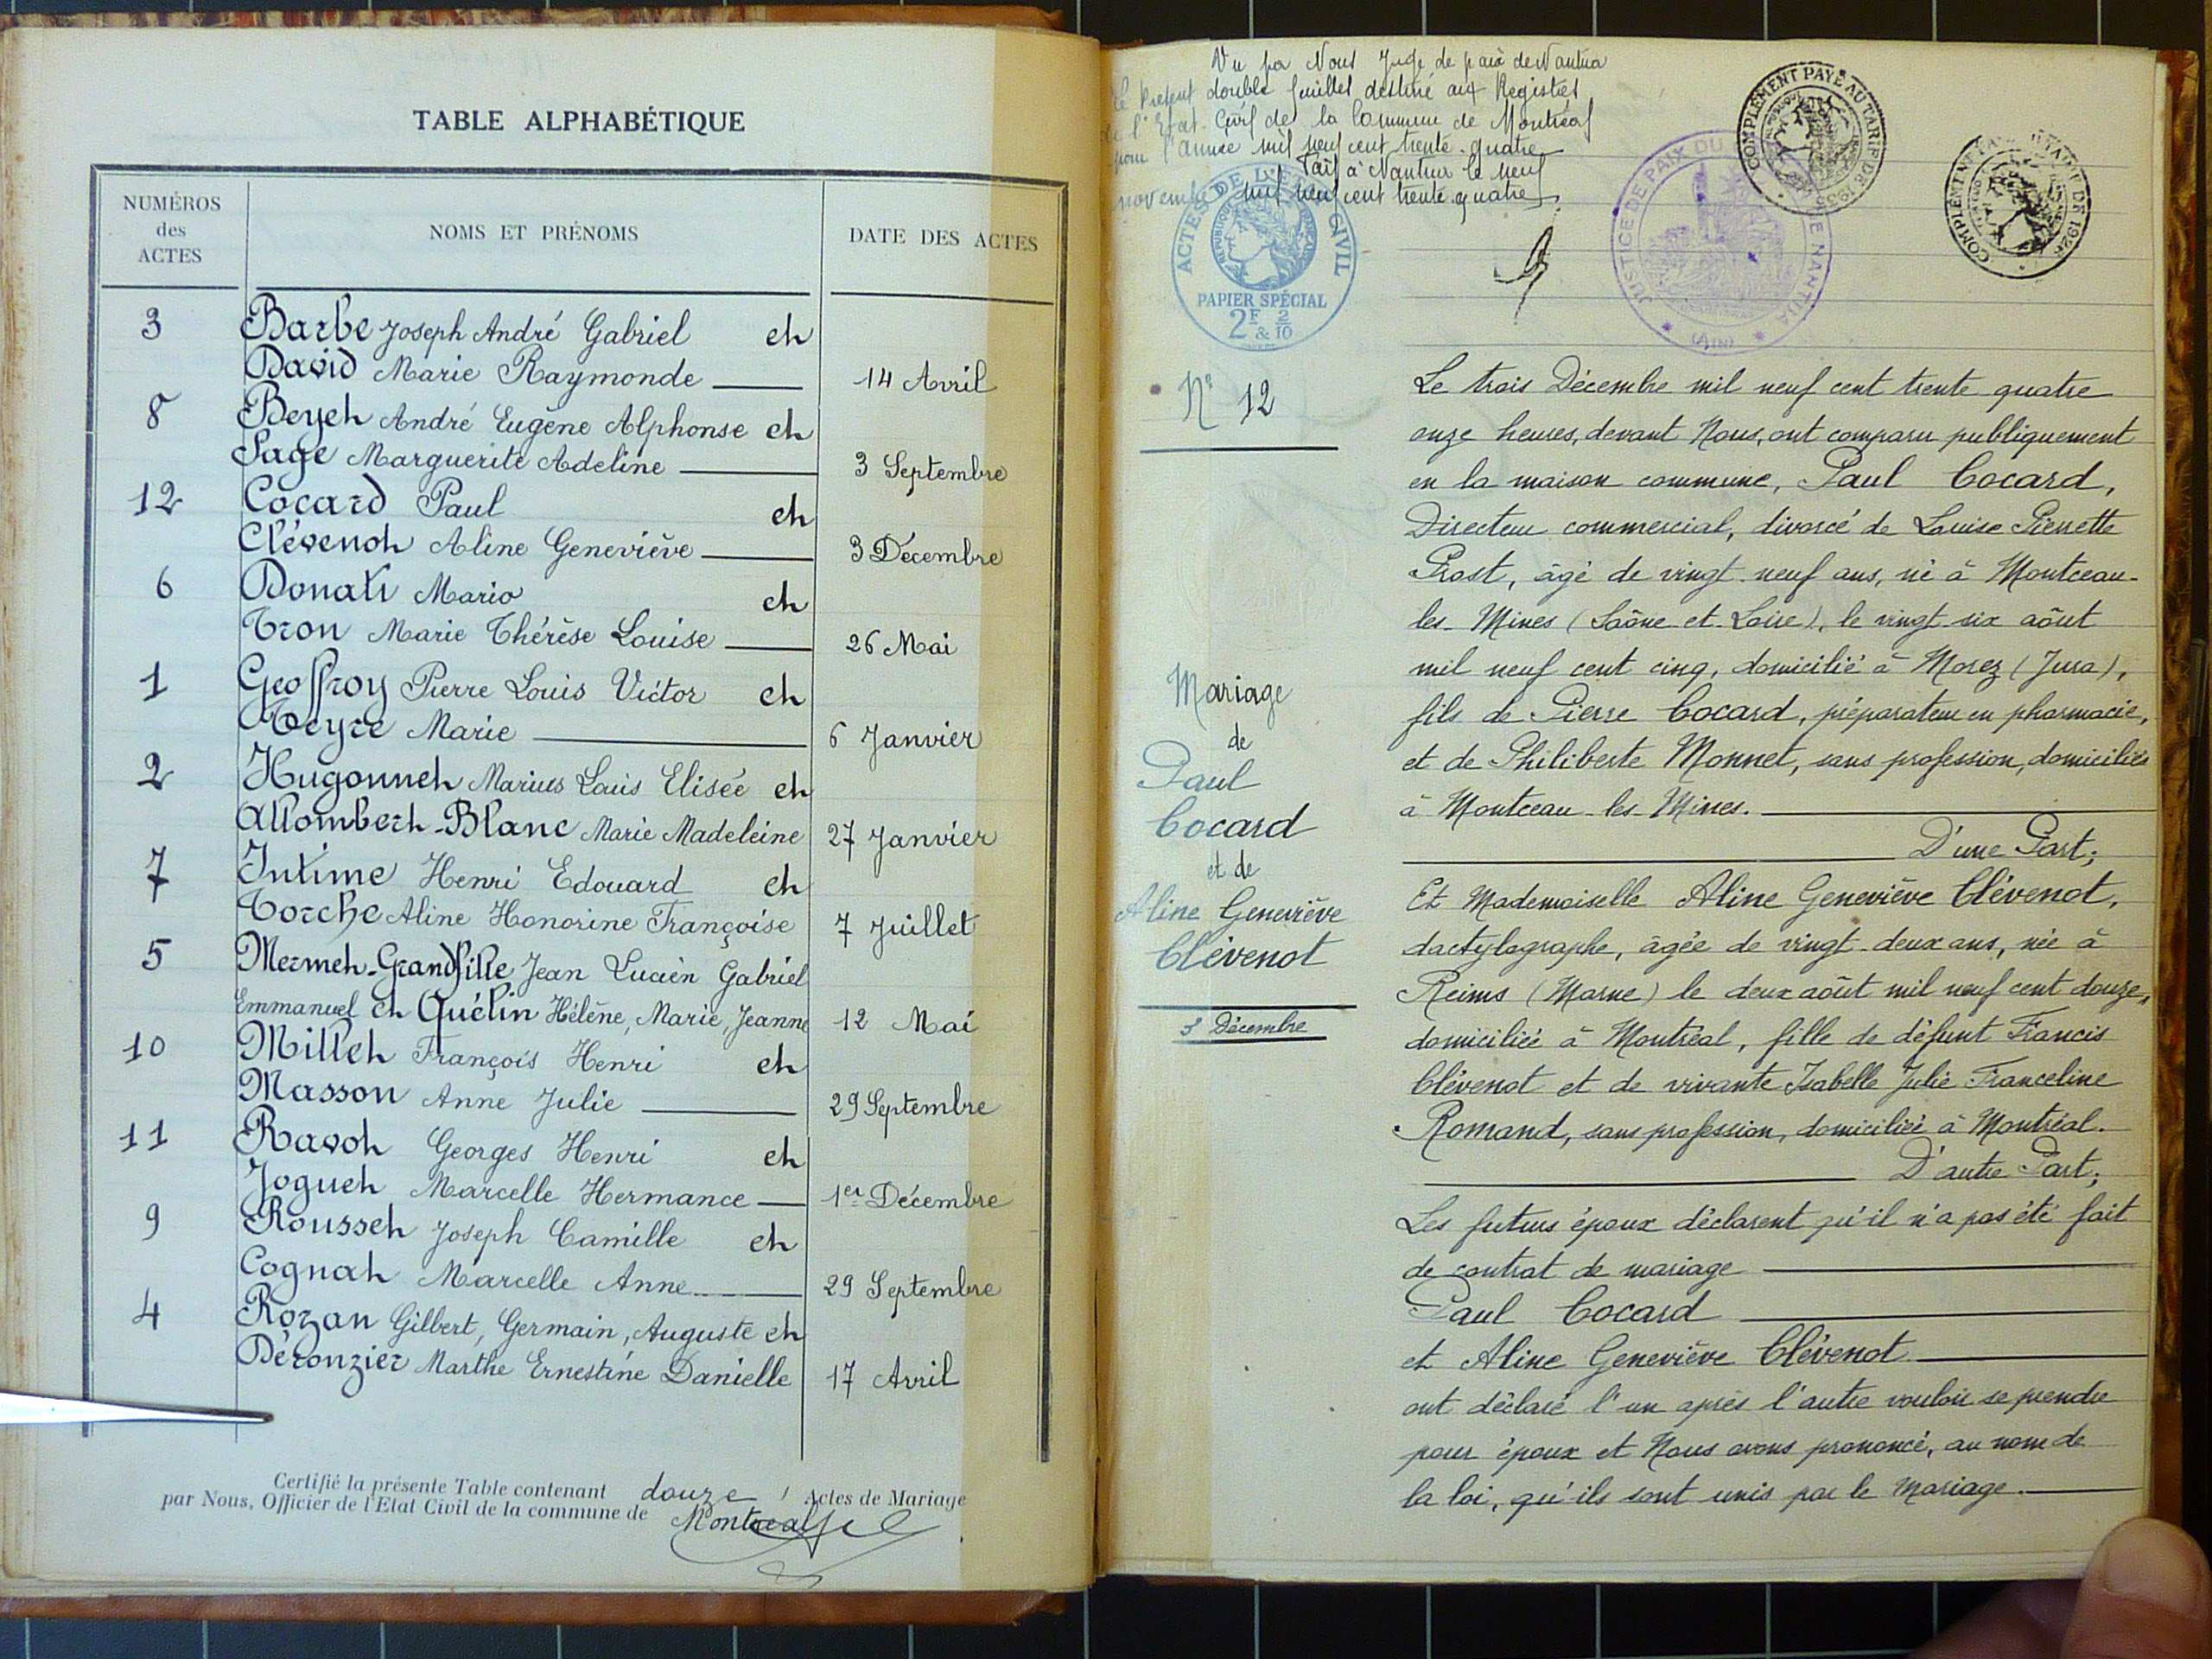 TABLE ALPHABÉTIQUE
NUMÉROS
des
ACTES
NOMS ET PRÉNOMS
DATE DES ACTES
3 Barbe Joseph André Gabriel et
David Marie Raymonde 14 Avril
8 Beyet André Eugène Alphonse et
Sage Marguerite Adeline 3 Septembre
12 Cocard Paul et
Clévenot Aline Geneviève 3 Décembre
6 Donati Mario et
Tron Marie Thérèse Louise 26 Mai
1 Geoffroy Pierre Louis Victor et
Marie 6 Janvier
2 Hugonnet Marius Louis Elisée et
Allombert-Blanc Marie Madeleine 27 Janvier
7 Intime Henri Edouard et
Torche Aline Honorine Françoise 7 Juillet
5 Mermet-Grandfille Jean Lucien Gabriel
Emmanuel et Quélin Hélène, Marie, Jeanne 12 Mai
10 Millet François Henri et
Masson Anne Julie 29 Septembre
11 Ravot Georges Henri et
Joguet Marcelle Hermance 1er Décembre
9 Rousset Joseph Camille et
Cognat Marcelle Anne 29 Septembre
4 Rozan Gilbert, Germain, Auguste et
Déronzier Marthe Ernestine Danielle 17 Avril
Certifié la présente Table contenant douze Actes de Mariage
par Nous, Officier de l'Etat Civil de la commune de Montréal
Vu par Nous Juge de paix de Nantua
le présent double feuillet destiné aux Registres
de l'Etat-Civil de la Commune de Montréal
pour l'année mil neuf cent trente-quatre
Fait à Nantua le neuf
novembre mil neuf cent trente quatre
ACTES DE L'ETAT CIVIL
REPUBLIQUE FRANÇAISE
PAPIER SPÉCIAL
2F & 2/10
JUSTICE DE PAIX DU DE NANTUA
(AIN)
COMPLÉMENT PAYÉ AU TARIF DE
COMPLÉMENT TARIF DE 1926
N° 12
Mariage
de
Paul
Cocard
et de
Aline Geneviève
Clévenot
3 Décembre
Le trois Décembre mil neuf cent trente quatre
onze heures, devant Nous, ont comparu publiquement
en la maison commune, Paul Cocard,
Directeur commercial, divorcé de Louise Pierrette
Prost, âgé de vingt-neuf ans, né à Montceau-
les-Mines (Saône-et-Loire), le vingt six août
mil neuf cent cinq, domicilié à Morez (Jura),
fils de Pierre Cocard, préparateur en pharmacie,
et de Philiberte Monnet, sans profession, domiciliés
à Montceau-les-Mines.
D'une Part;
Et Mademoiselle Aline Geneviève Clévenot,
dactylographe, âgée de vingt-deux ans, née à
Reims (Marne) le deux août mil neuf cent douze,
domiciliée à Montréal, fille de défunt Francis
Clévenot et de vivante Isabelle Julie Franceline
Romand, sans profession, domiciliée à Montréal.
D'autre Part;
Les futurs époux déclarent qu'il n'a pas été fait
de contrat de mariage
Paul Cocard
et Aline Geneviève Clévenot
ont déclaré l'un après l'autre vouloir se prendre
pour époux et Nous avons prononcé, au nom de
la loi, qu'ils sont unis par le Mariage.